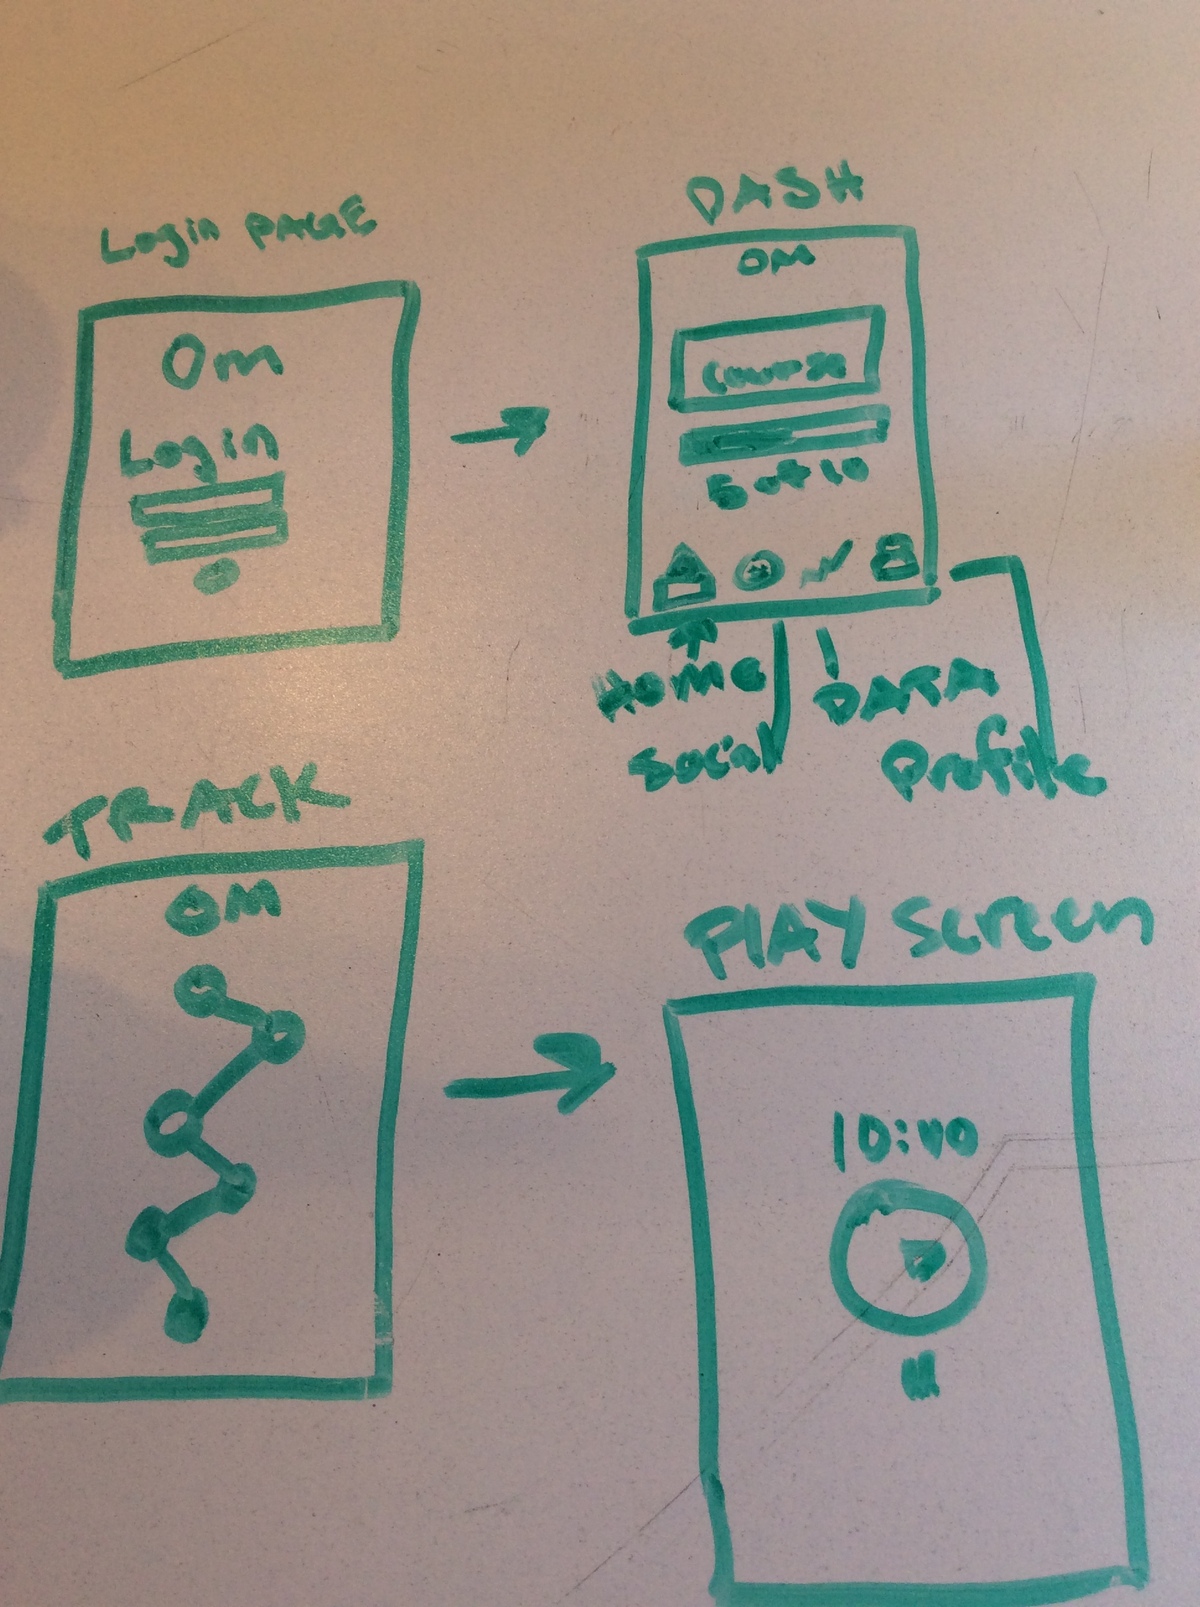 Login PAGE
Om
Login
DASH
OM
Course
5 of 10
HOME
Social
DATA
Profile
TRACK
OM
PLAY Screen
10:40